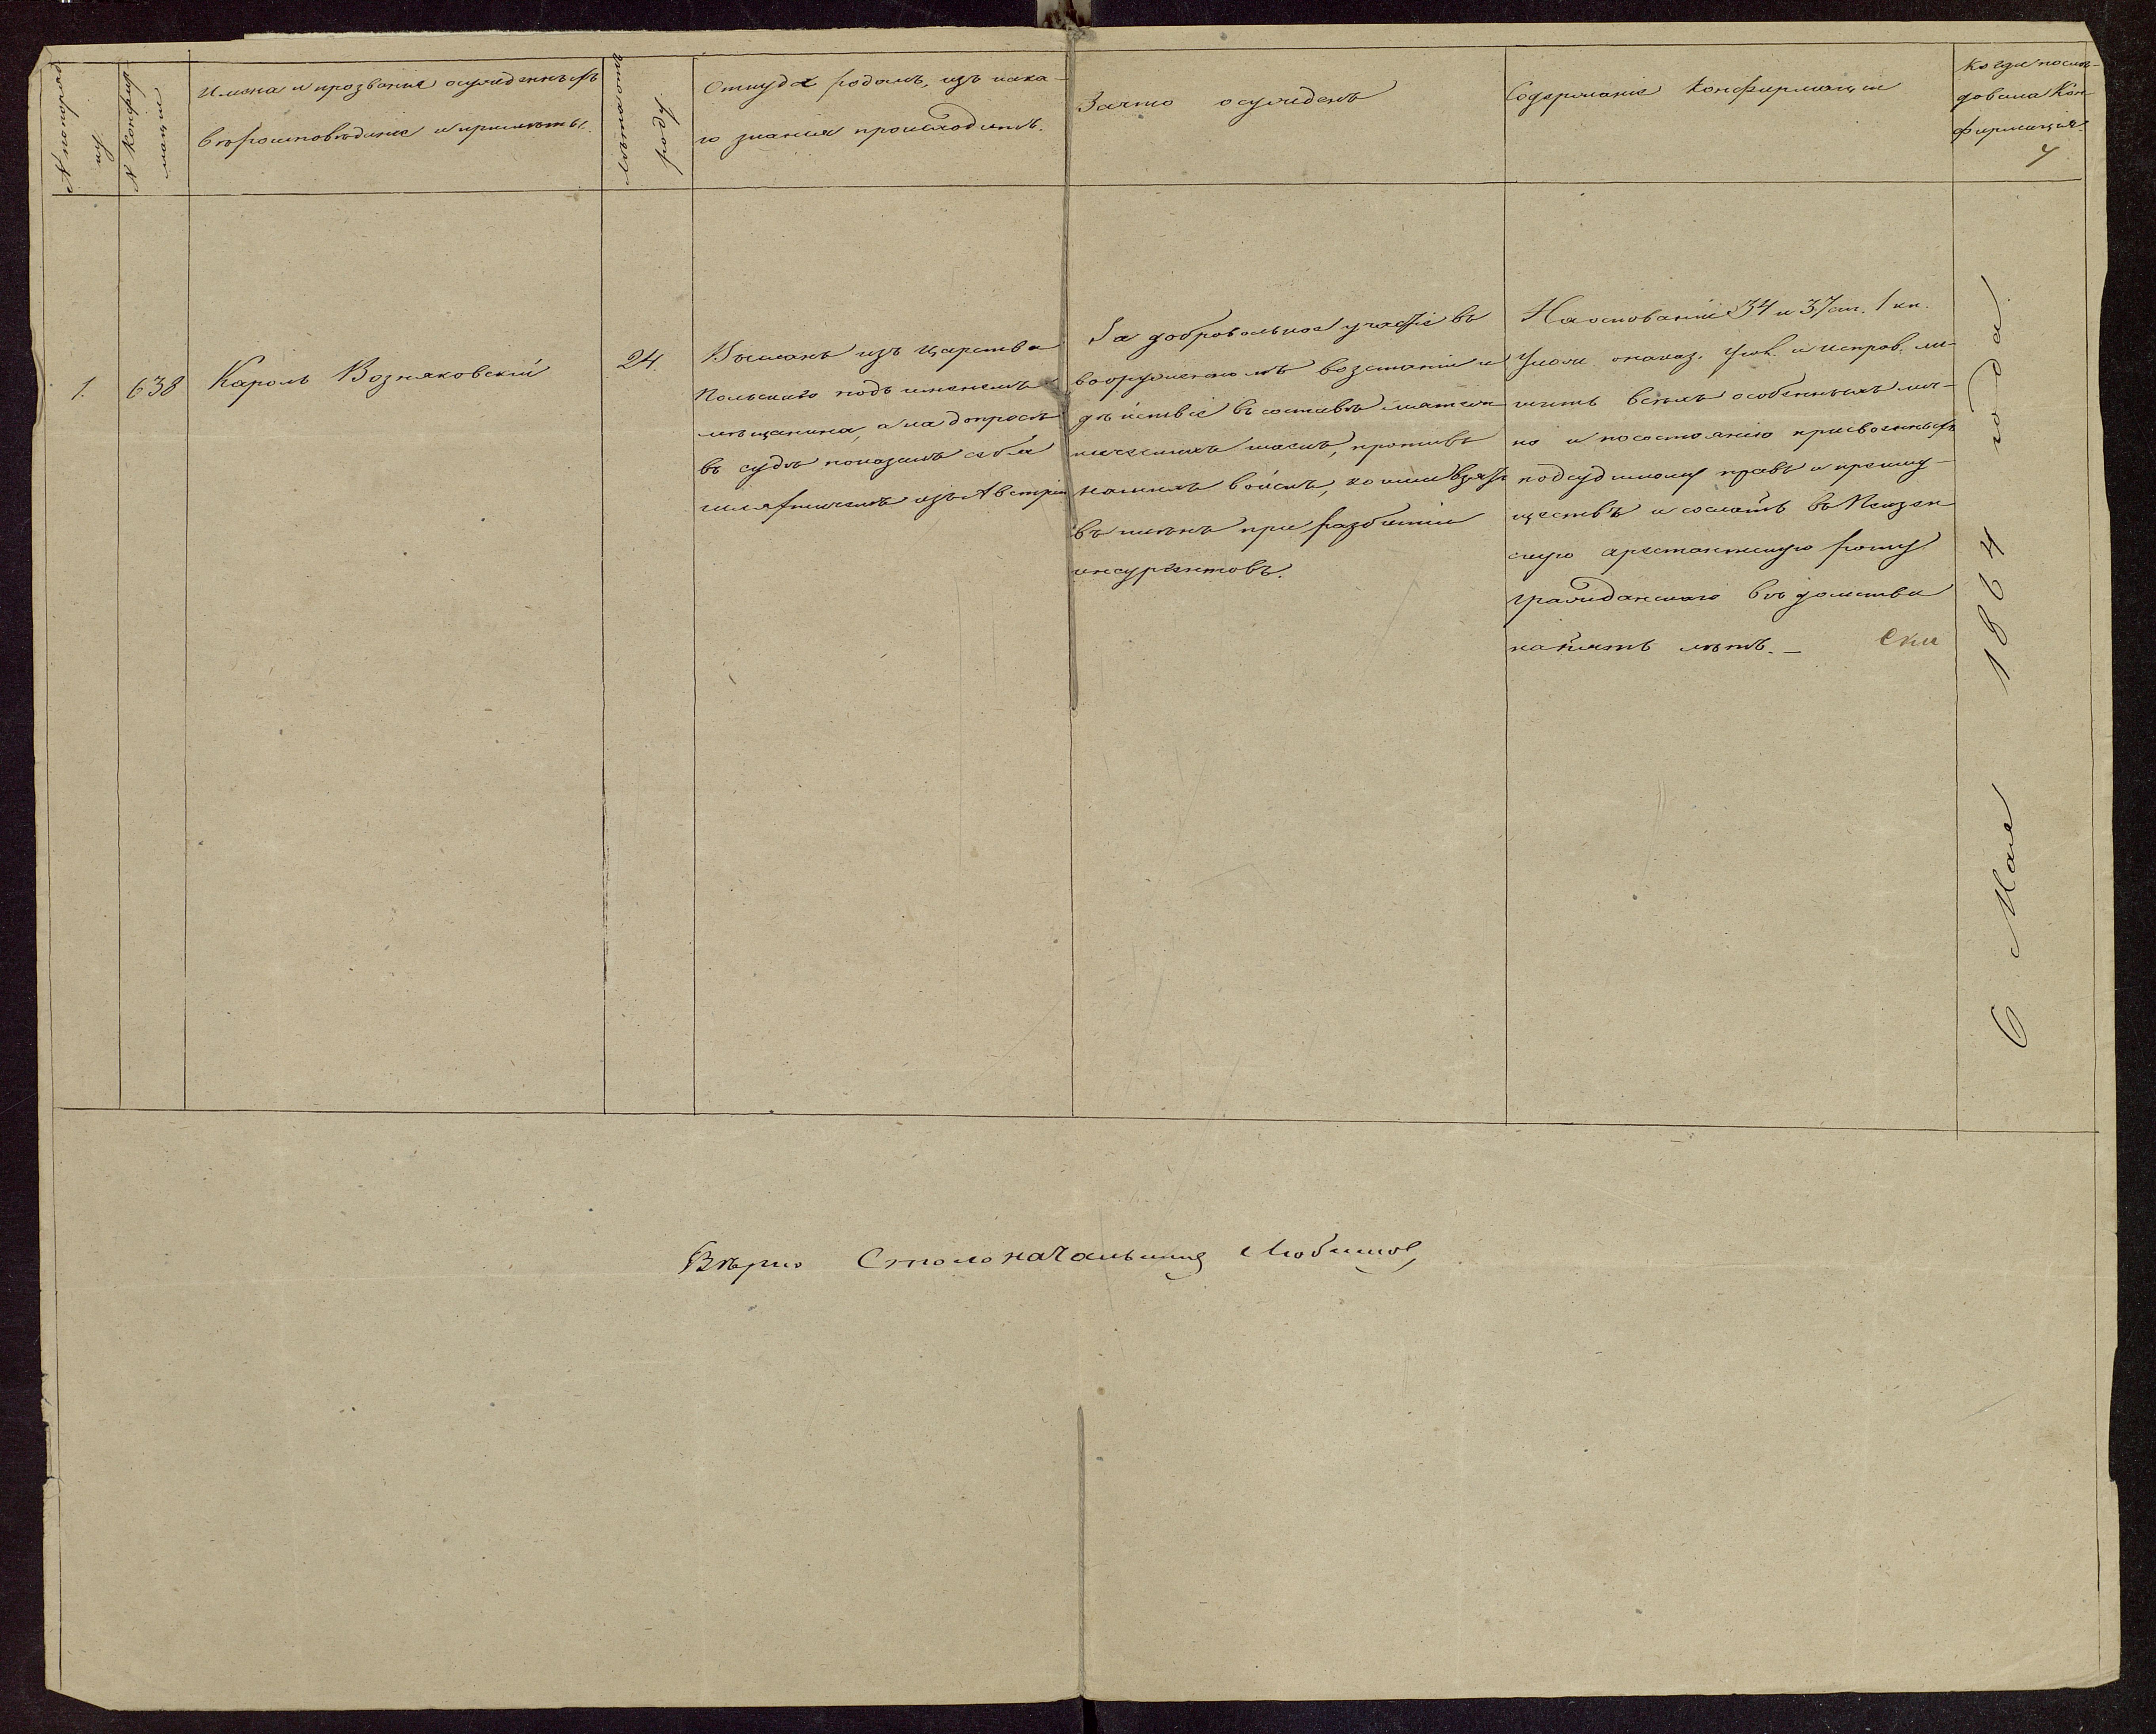 № попоряд-
ку
№ Конфир-
маціи
Имена и прозванія осужденныхъ
вѣроисповѣданіе и примѣты.
Лѣта отъ
роду.
Откуда родомъ, изъ кака-
го званія происходитъ.
За что осужденъ
Содержаніе Конфирмаціи
Когда послѣ-
довала Кон-
фирмація.
7
1.
638
Кароль Возняковскій
24.
Высланъ изъ Царства
Польскаго подъ именемъ
мѣщанина, а на допросѣ
въ судѣ показалъ себя
шляхтичемъ изъ Австріи
За добровольное участіе въ
вооруженномъ возстаніи и
дѣйствіе въ составѣ мятеж
ническихъ шаекъ, противъ
нашихъ войскъ, коими взятъ
въ плѣнъ при разбитіи
инсургентовъ.
На основаніи 34 и 37 ст. 1 кн.
Улож. о наказ. угол. и исправ. ли-
шить всѣхъ особенныхъ лич-
но и по состоянію присвоенныхъ
подсудимому правъ и преиму-
ществъ и сослать въ Пензен
скую арестантскую роту
гражданскаго вѣдомства
на пять лѣтъ. —
6 Мая 1864 года.
Вѣрно Столоначальникъ Любимовъ